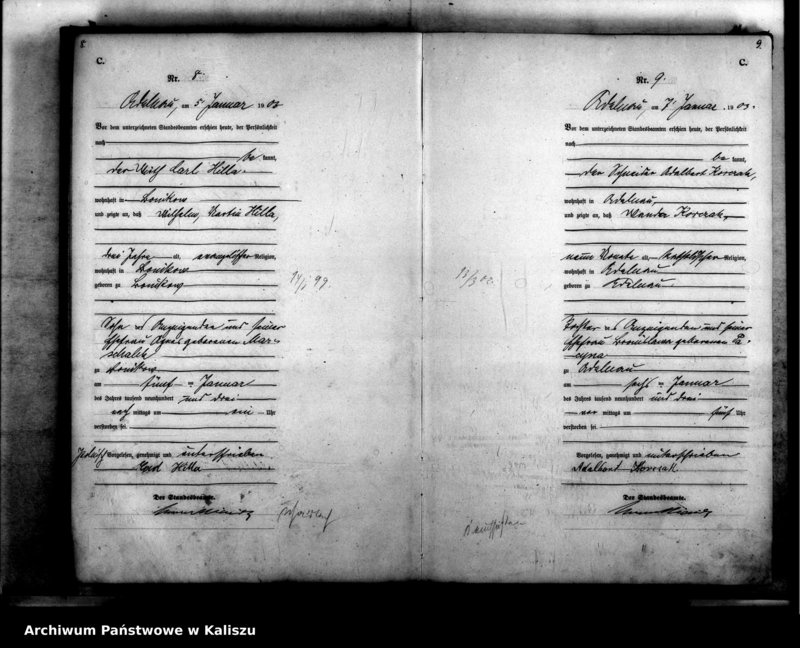 8.
C.
Nr. 8.
Adelnau, am 5 Januar 1903
Vor dem unterzeichneten Standesbeamten erschien heute, der Persönlichkeit
nach
be kannt,
der Carl Hilla
wohnhaft in Bonikow
und zeigte an, daß Wilhelm, Hilla,
drei Jahre alt, evangelischer Religion,
wohnhaft in Bonikow
geboren zu Bonikow
Sohn des Anzeigenden und seiner
Ehefrau Agnes geborenen Mar-
schalek
zu Bonikow
am fünf ten Januar
des Jahres tausend neunhundert und drei
nach mittags um ein Uhr
verstorben sei.
Vorgelesen, genehmigt und unterschrieben
Hilla
Der Standesbeamte.
9.
C.
Nr. 9.
Adelnau, am 7 Januar 1903.
Vor dem unterzeichneten Standesbeamten erschien heute, der Persönlichkeit
nach
be kannt,
der Schneider Adalbert Korczak,
wohnhaft in Adelnau,
und zeigte an, daß Wanda Korczak,
neun Monate alt, katholischer Religion,
wohnhaft in Adelnau
geboren zu Adelnau
Tochter des Anzeigenden und seiner
Ehefrau Bronislawa geborenen
zu Adelnau
am sechs ten Januar
des Jahres tausend neunhundert und drei
vor mittags um fünf Uhr
verstorben sei.
Vorgelesen, genehmigt und unterschrieben
Adalbert Korczak
Der Standesbeamte.
Archiwum Państwowe w Kaliszu